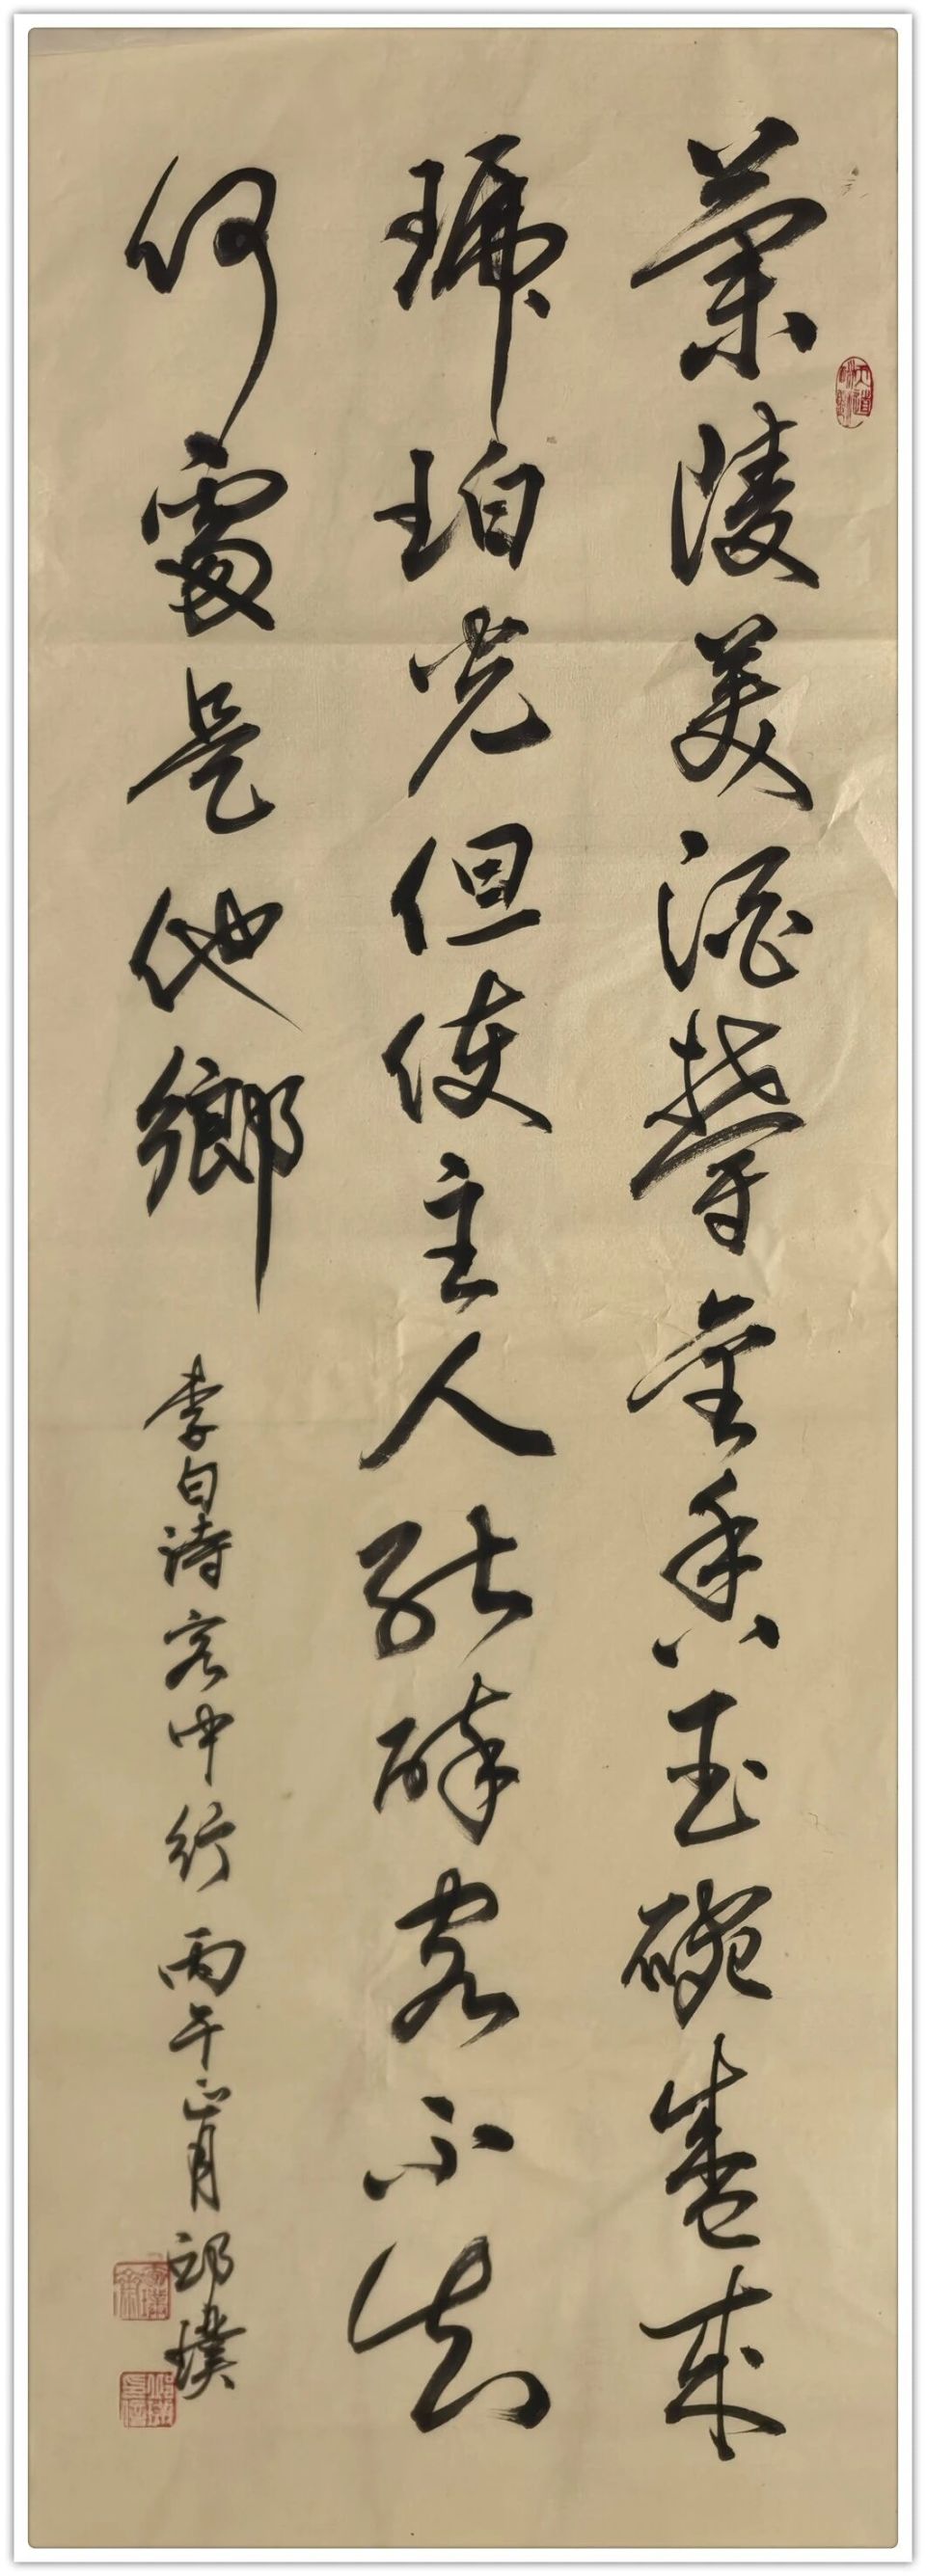 蘭陵美酒鬱金香玉碗盛來
琥珀光但使主人能醉客不知
何處是他鄉
李白詩客中行 丙午正月 邱璞